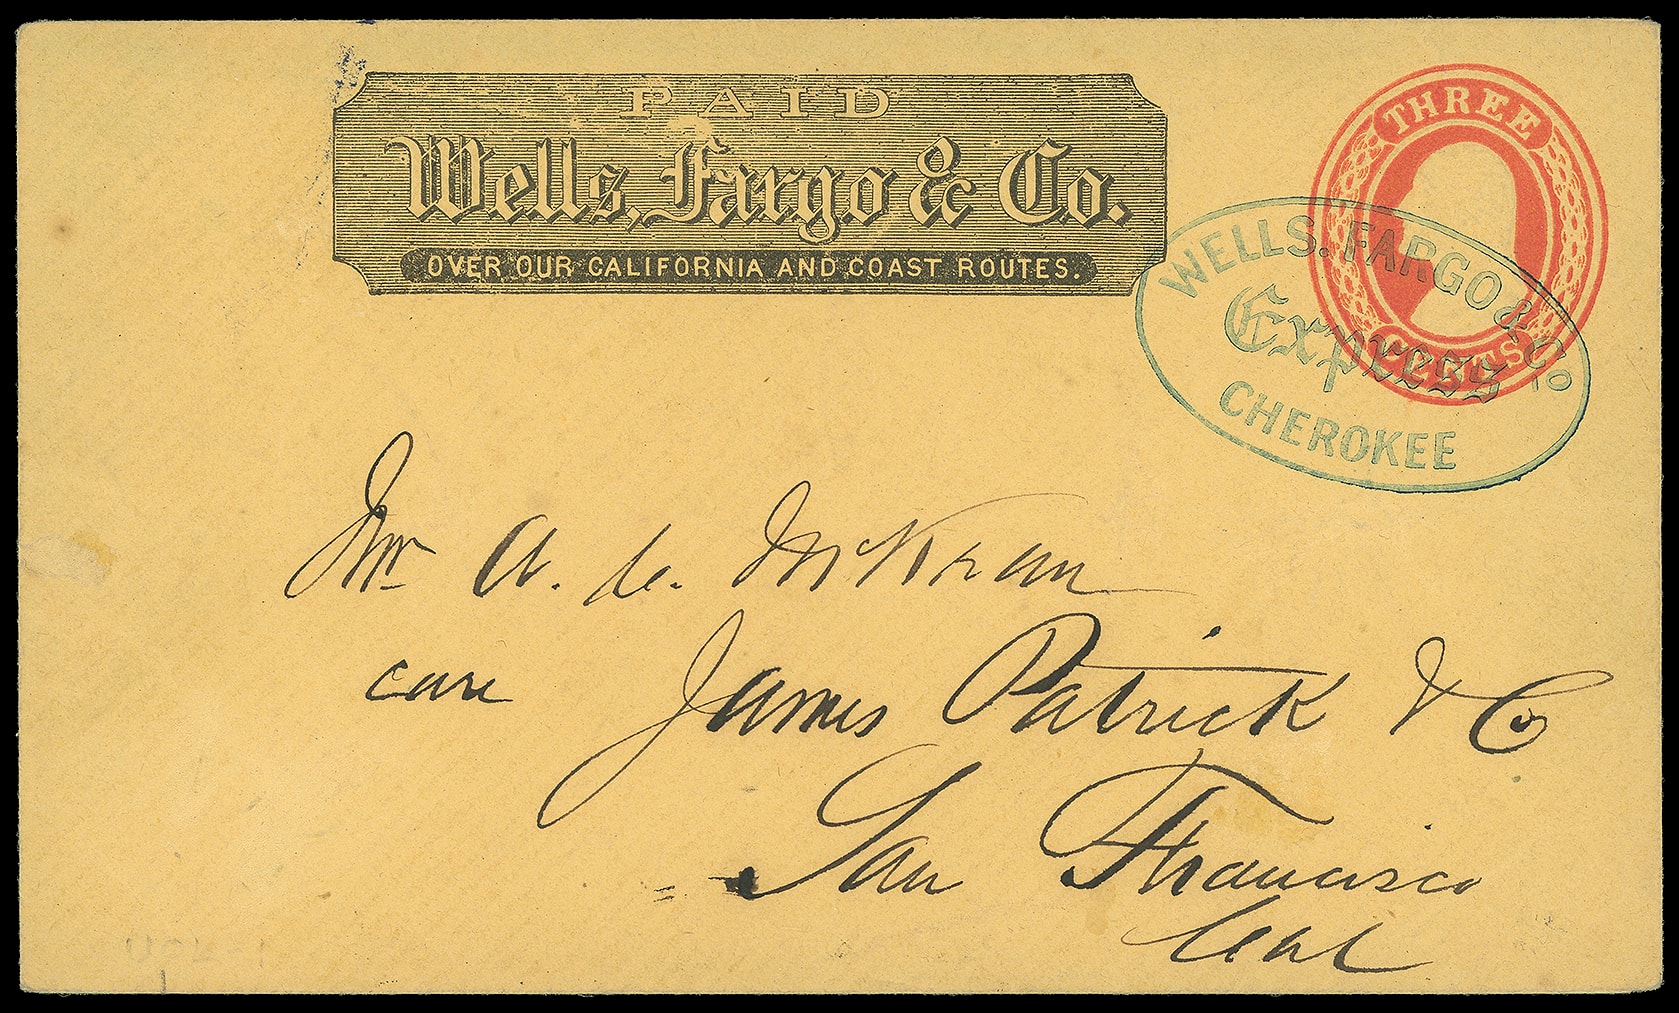 PAID
Wells, Fargo & Co.
OVER OUR CALIFORNIA AND COAST ROUTES.
THREE
CENTS
WELLS. FARGO & CO
Express
CHEROKEE
Mr A. C.
care James Patrick & Co
San Francisco
Cal